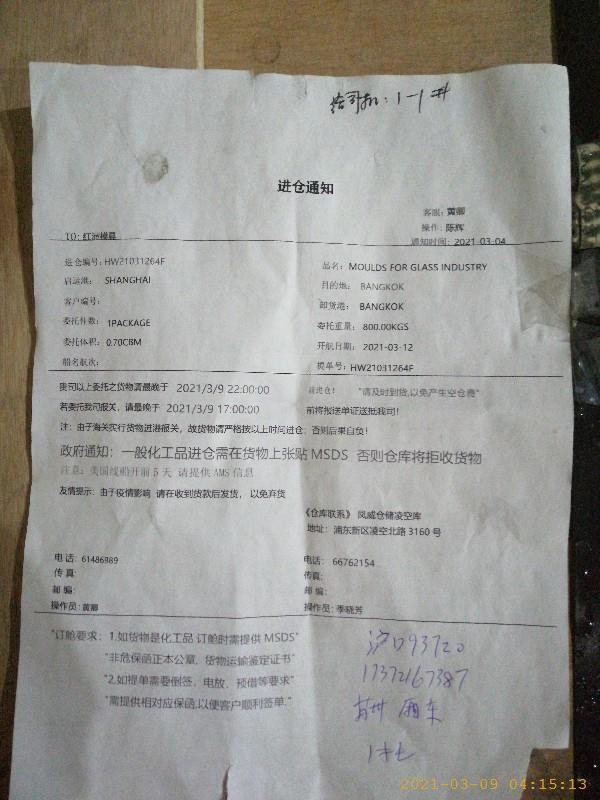 给司机: 1-1#
进仓通知
客服: 黄卿
操作: 陈辉
TO: 红洲模具
通知时间: 2021-03-04
进仓编号: HW21031264F
品名: MOULDS FOR GLASS INDUSTRY
启运港: SHANGHAI
目的地: BANGKOK
客户编号:
卸货港: BANGKOK
委托件数: 1PACKAGE
委托重量: 800.00KGS
委托体积: 0.70CBM
开航日期: 2021-03-12
船名航次:
提单号: HW21031264F
我司以上委托之货物请最晚于 2021/3/9 22:00:00 前进仓! "请及时到货,以免产生空仓费"
若委托我司报关, 请最晚于 2021/3/9 17:00:00 前将报送单证送抵我司!
注: 由于海关实行货物进港报关, 故货物请严格按以上时间进仓; 否则后果自负!
政府通知: 一般化工品进仓需在货物上张贴 MSDS 否则仓库将拒收货物
注意: 美国线船开前 5 天 请提供 AMS 信息
友情提示: 由于疫情影响 请在收到货款后发货, 以免弃货
《仓库联系》 凤威仓储凌空库
地址: 浦东新区凌空北路 3160 号
电话: 61486989
电话: 66762154
传真:
传真:
邮编:
邮编:
操作员: 黄卿
操作员: 季晓芳
"订舱要求: 1.如货物是化工品 订舱时需提供 MSDS"
"非危保函正本公章, 货物运输鉴定证书"
"2.如提单需要倒签, 电放, 预借等要求"
"需提供相对应保函;以便客户顺利签单."
17372167387
厢车
2021-03-09 04:15:13